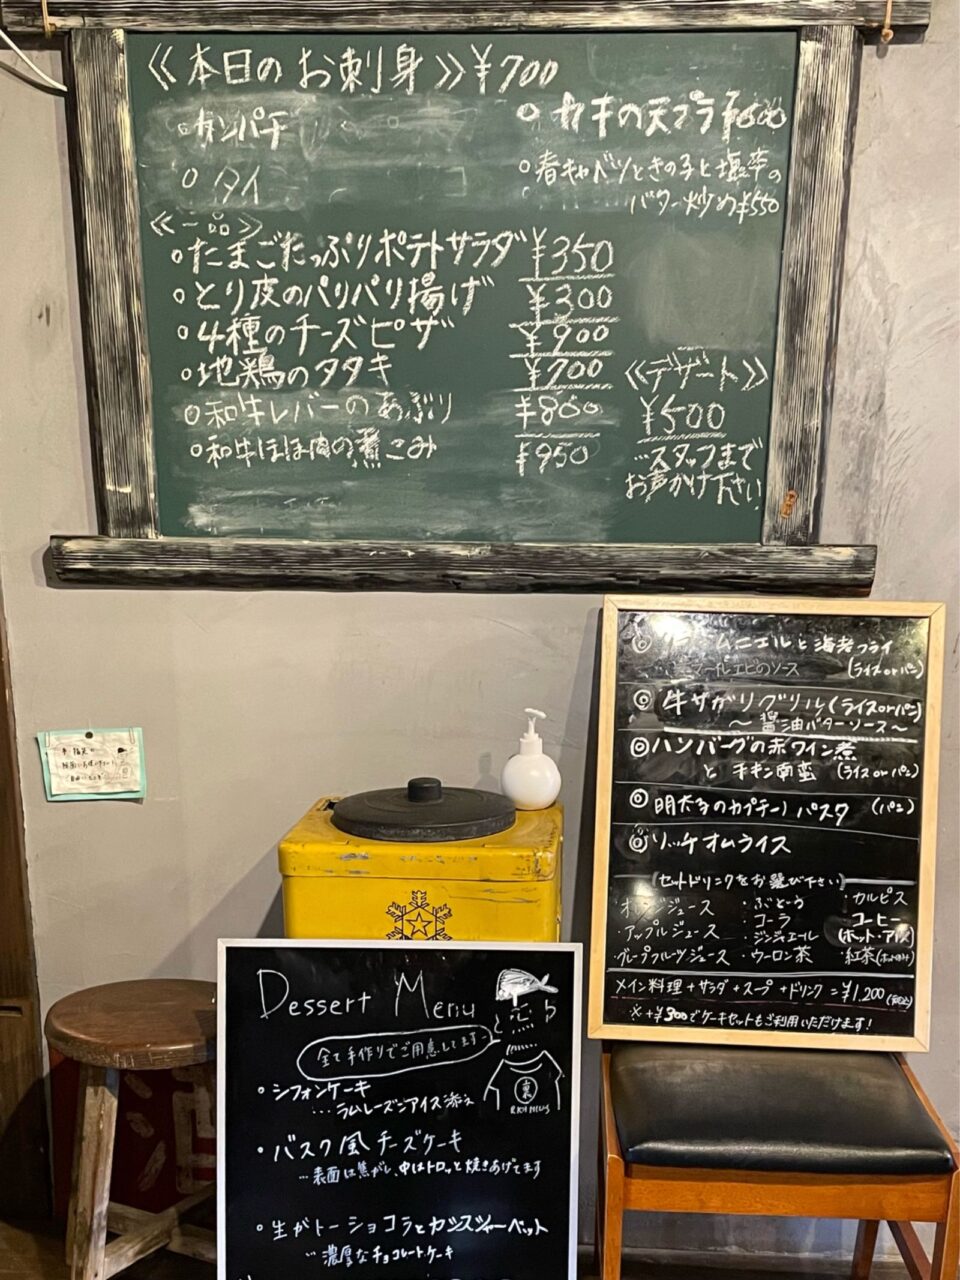 ≪本日のお刺身≫¥700
○カンパチ
○タイ
○カキの天プラ ¥600
○春キャベツときの子と塩辛の
バター炒め¥550
≪一品≫
○たまごたっぷりポテトサラダ ¥350
○とり皮のパリパリ揚げ ¥300
○4種のチーズピザ ¥900
○地鶏のタタキ ¥700
○和牛レバーのあぶり ¥800
○和牛ほほ肉の煮こみ ¥950
≪デザート≫
¥500
…スタッフまで
お声かけ下さい
◎ムニエルと海老フライ
ソース (ライスorパン)
◎牛サガリグリル(ライスorパン)
～醤油バターソース～
◎ハンバーグの赤ワイン煮
とチキン南蛮 (ライスorパン)
◎明太子のカプチーノパスタ (パン)
◎リッチオムライス
(セットドリンクをお選び下さい)
オレンジジュース ・ぶどう ・カルピス
・アップルジュース ・コーラ ・コーヒー
・グレープフルーツジュース ・ジンジャエール (ホット・アイス)
・ウーロン茶 ・紅茶(ホットのみ)
メイン料理+サラダ+スープ+ドリンク=¥1,200(税込)
※+¥300でケーキセットもご利用いただけます!
Dessert Menu
全て手作りでご用意してます
○シフォンケーキ
…ラムレーズンアイス添え
裏
・バスク風チーズケーキ
…表面は焦がし、中はトロッと焼きあげてます
・生ガトーショコラとカシスシャーベット
…濃厚なチョコレートケーキ